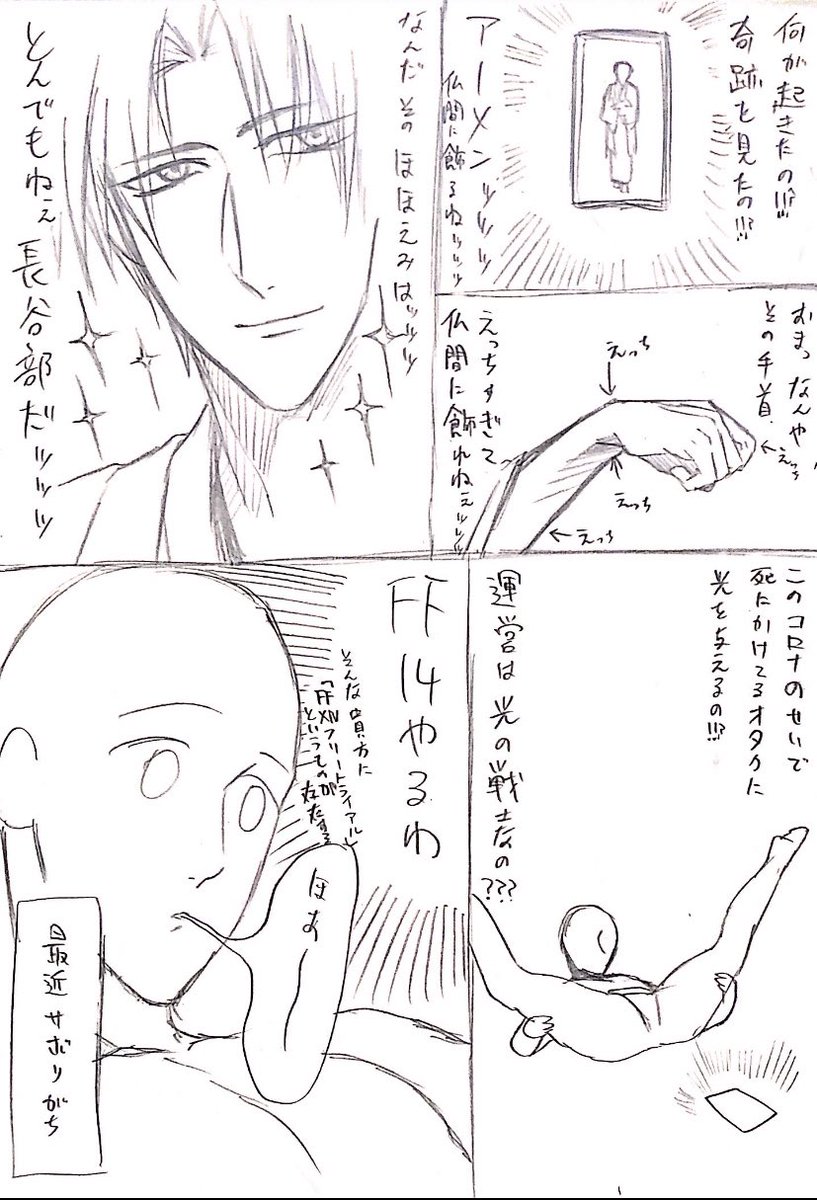 何が起きたの!!!?
奇跡を見たの!!!?
アーメンッッッ
仏間に飾るねッッッ
なんだそのほほえみはッッッ
とんでもねぇ長谷部だッッッ
おまっなんや
その手首
えっち
えっち
えっち
えっち
えっちすぎて
仏間に飾れねぇッッッ
このコロナのせいで
死にかけてるオタクに
光を与えるの!!!?
運営は光の戦士なの???
FF14やるわ
そんな貴方に
「FFXIVフリートライアル」
というものが
存在する
ほおー
最近サボりがち